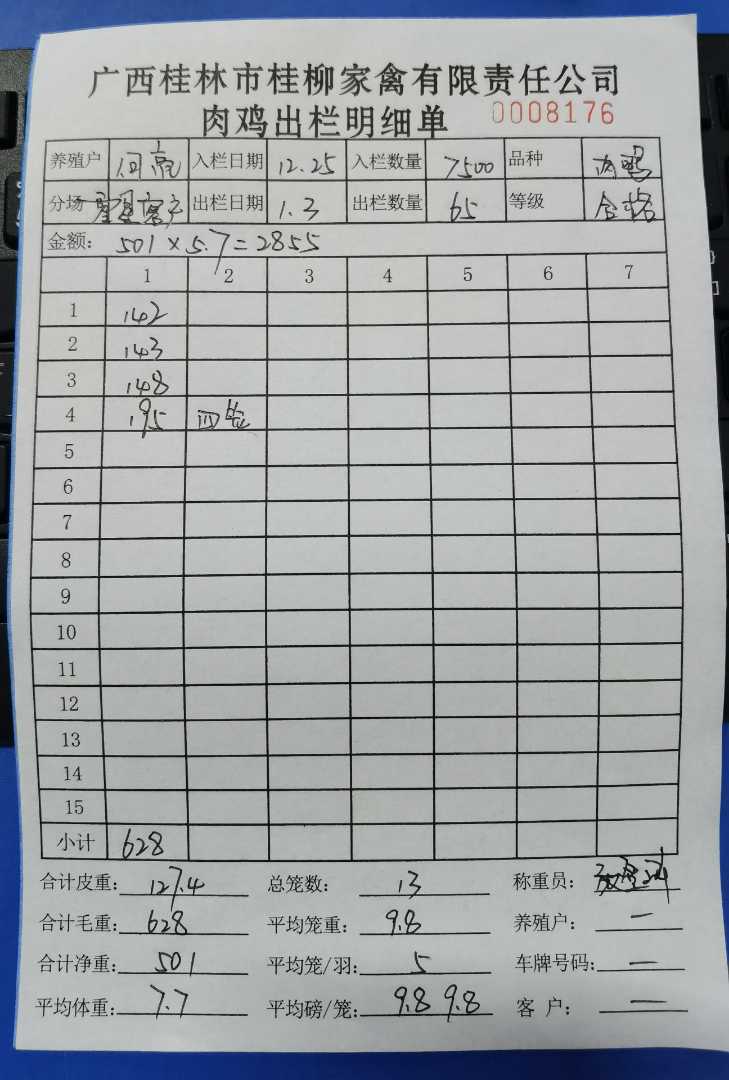 广西桂林市桂柳家禽有限责任公司
肉鸡出栏明细单 0008176
养殖户 何 入栏日期 12.25 入栏数量 7500 品种 肉鸡
分场 出栏日期 1.3 出栏数量 65 等级 合格
金额: 501×5.7=2855
1 2 3 4 5 6 7
1 142
2 143
3 148
4 195 四笼
5
6
7
8
9
10
11
12
13
14
15
小计 628
合计皮重: 127.4 总笼数: 13 称重员:
合计毛重: 628 平均笼重: 9.8 养殖户: 一
合计净重: 501 平均笼/羽: 5 车牌号码: 一
平均体重: 7.7 平均磅/笼: 9.8 9.8 客 户: 一